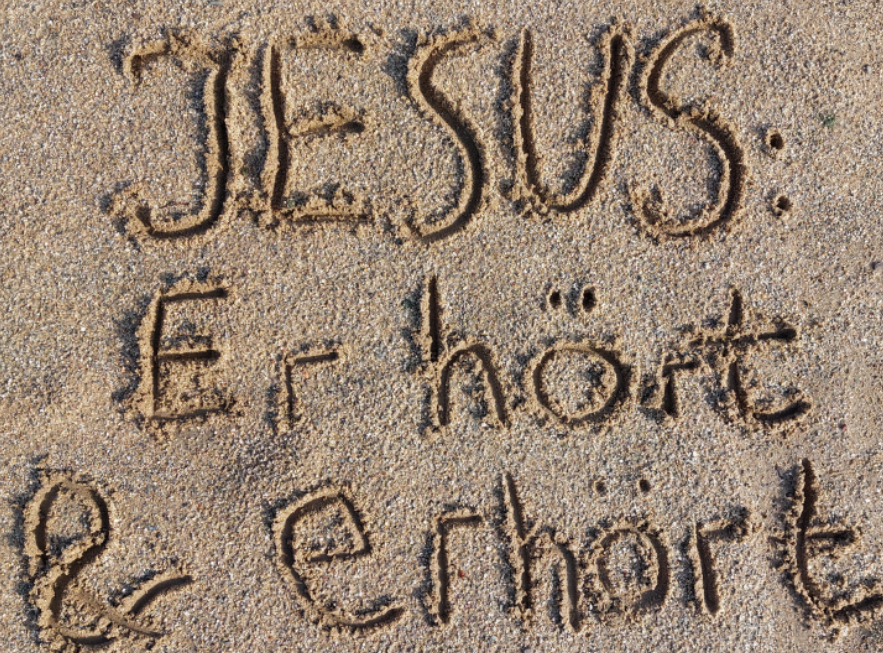 JESUS:
Er hört
& erhört